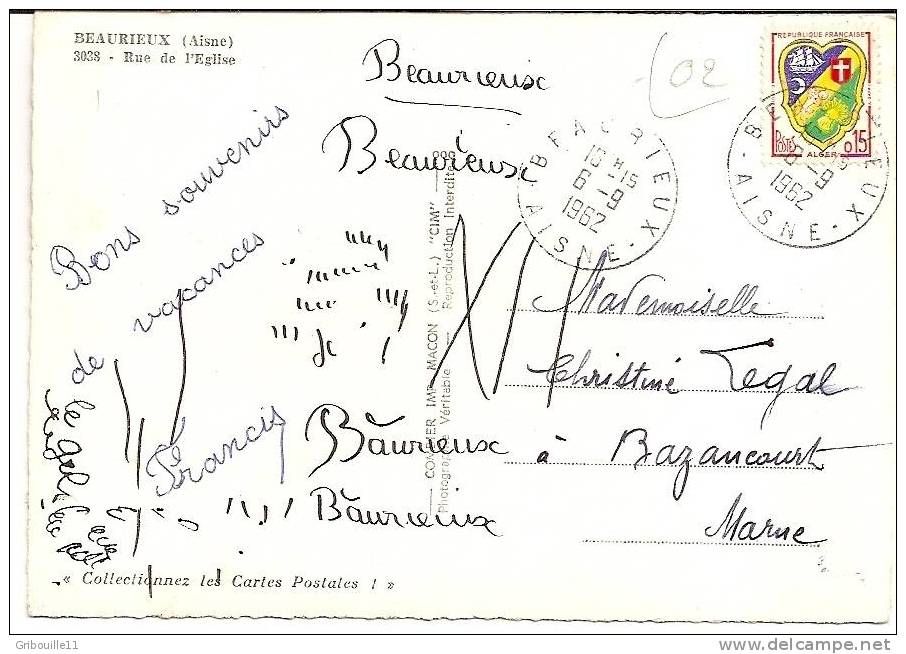 BEAURIEUX (Aisne)
3038 - Rue de l'Eglise
Beaurieux
Beaurieux
02
REPUBLIQUE FRANÇAISE
POSTES
ALGER
0,15
BEAURIEUX
10 H 15
6 - 9
1962
AISNE
1962
AISNE
Bons souvenirs
de vacances
Francis
Mademoiselle
Christine Legal
à Bazancourt
Marne
Băurieux
Băurieux
COMBIER IMP. MACON (S.-et-L.) "CIM"
Photographie Véritable — Reproduction Interdite
« Collectionnez les Cartes Postales ! »
Gribouille11
www.delcampe.net